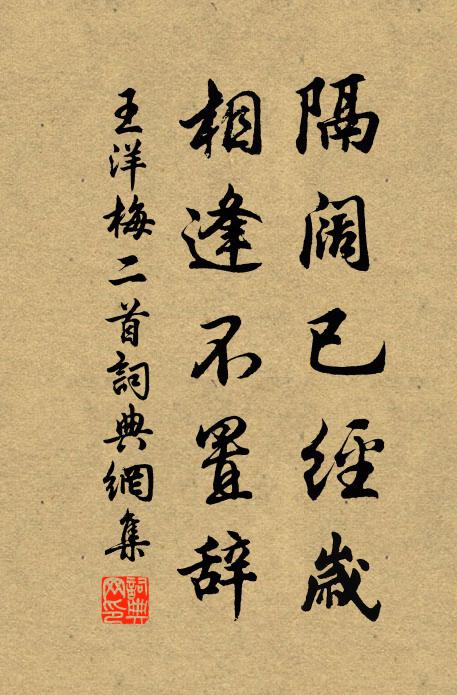 隔阔已經歲
相逢不置辞
王洋梅二首詞典網集
詞典網印